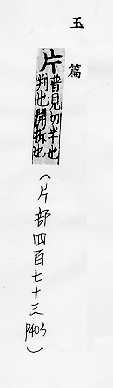 玉篇
片普見切半也
判也開坼也
(片部四百七十三 P403)